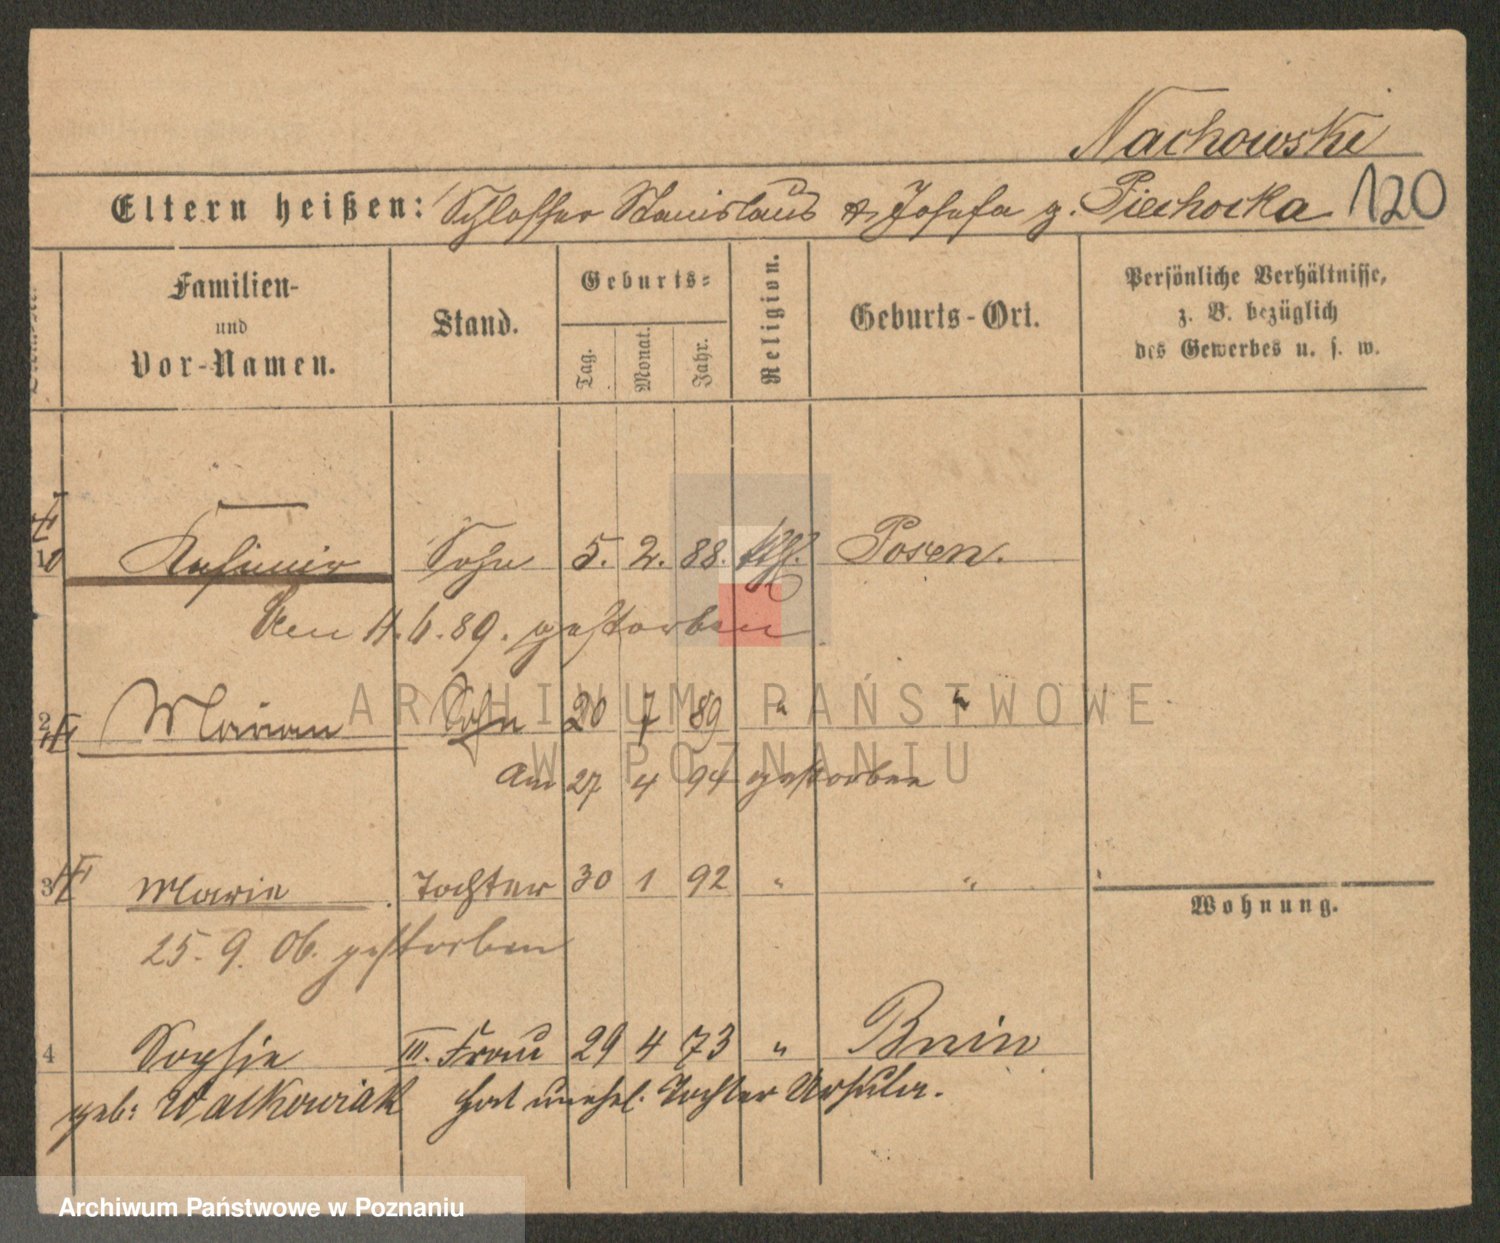 Nachowski
Eltern heißen: Schlosser Stanislaus & Josefa g. Piechocka 120
Familien- und Vor-Namen.
Stand.
Geburts-
Tag. Monat. Jahr.
Religion.
Geburts-Ort.
Persönliche Verhältnisse,
z. B. bezüglich
des Gewerbes u. s. w.
Kasimir Sohn 5. 2. 88. kth. Posen.
Den 11. 6. 89. gestorben
2 Marian Sohn 20 7 89 " "
Am 27 4 94 gestorben
3 Marie Tochter 30 1 92 " "
Wohnung.
25. 9. 06. gestorben
4 Sophie III. Frau 29 4 73 " Bnin
geb: Walkowiak hat unehel. Tochter Ursula.
ARCHIWUM PAŃSTWOWE
W POZNANIU
Archiwum Państwowe w Poznaniu